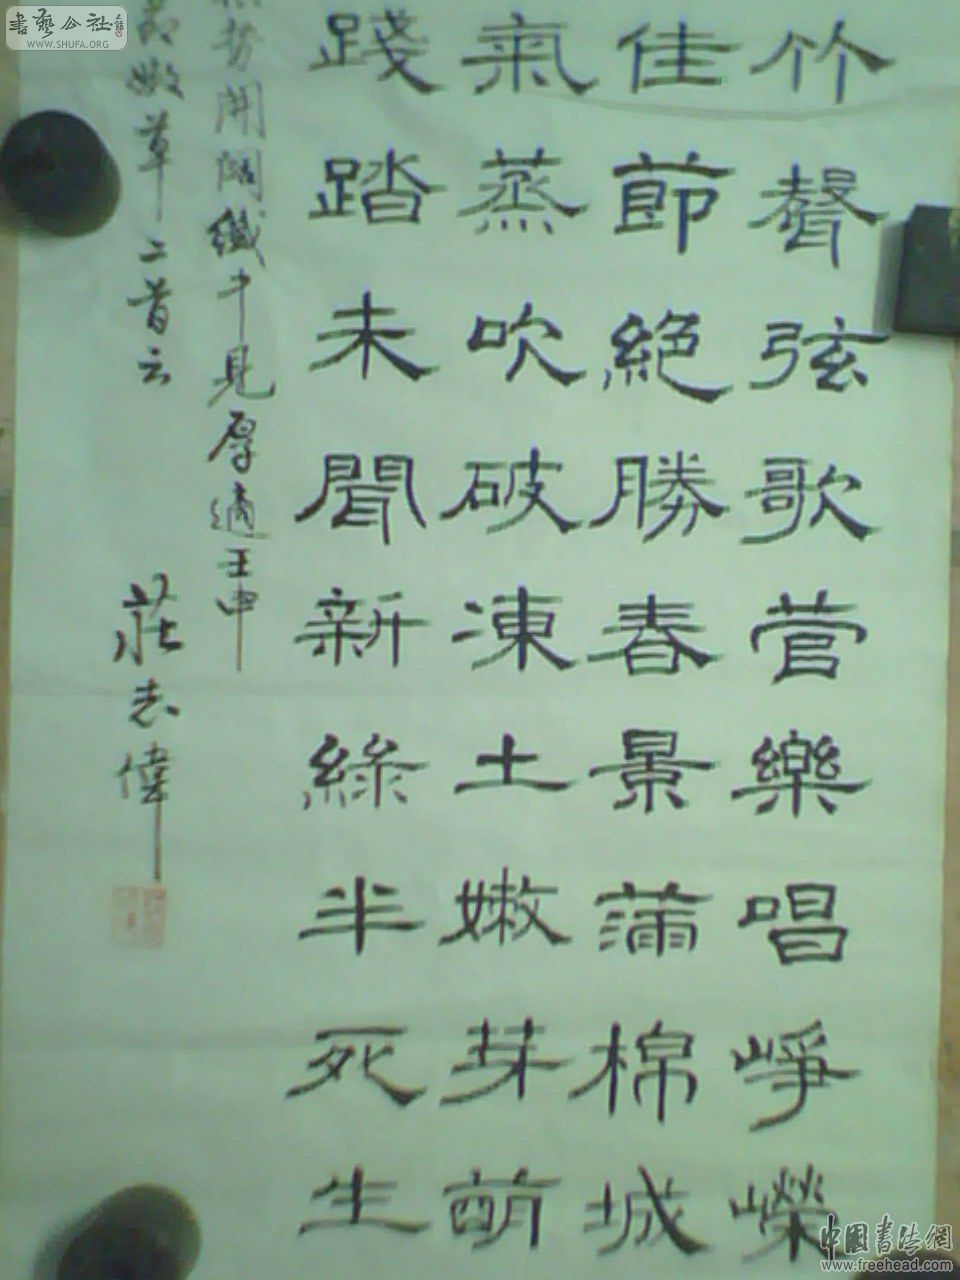 竹聲弦歌菅樂唱崢嶸
佳節絕勝春景蒲棉城
氣蒸吹破凍土嫩芽萌
踐踏未聞新綠半死生
勢開闊纖中見厚適壬申
嫩草二首云
莊志偉
書藝公社
WWW.SHUFA.ORG
中國書法網
www.freehead.com